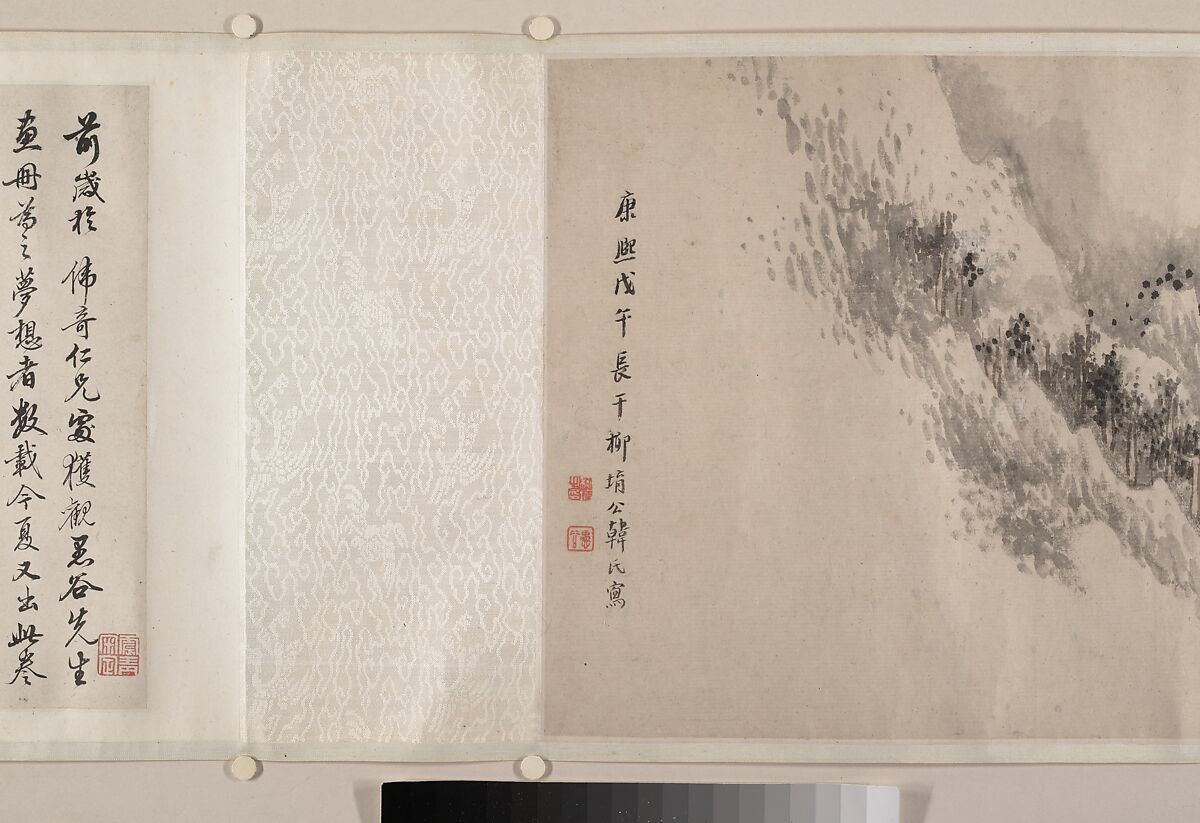 康熙戊午長干柳堉公韓氏寫
前歲於 偉奇仁兄處獲觀愚谷先生
畫冊為之夢想者數載今夏又出此卷